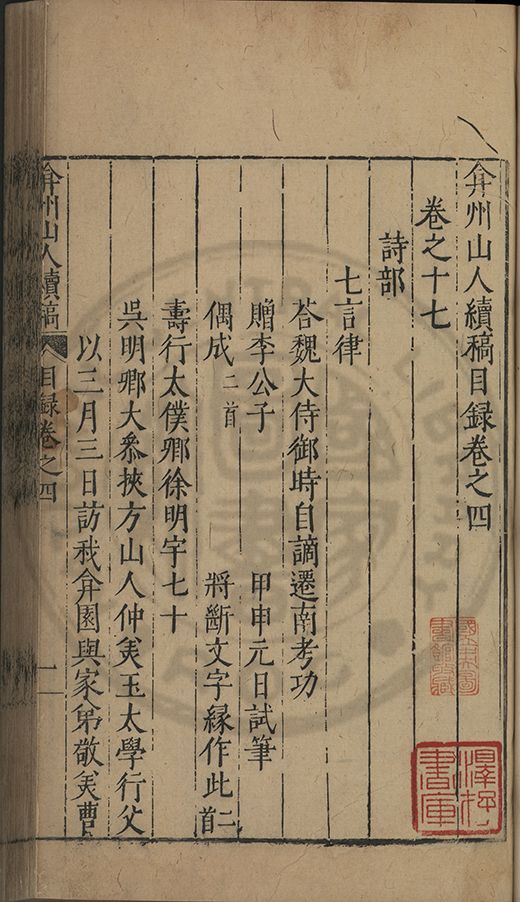 弇州山人續稿目録卷之四
卷之十七
詩部
七言律
荅魏大侍御時自謫遷南考功
贈李公子　甲申元日試筆
偶成二首　將斷文字緣作此二首
壽行太僕卿徐明宇七十
吳明卿大叅挾方山人仲美王太學行父
以三月三日訪我弇園與家弟敬美曹
弇州山人續稿　目録卷之四　一
澤存書庫
國立中央圖書館藏